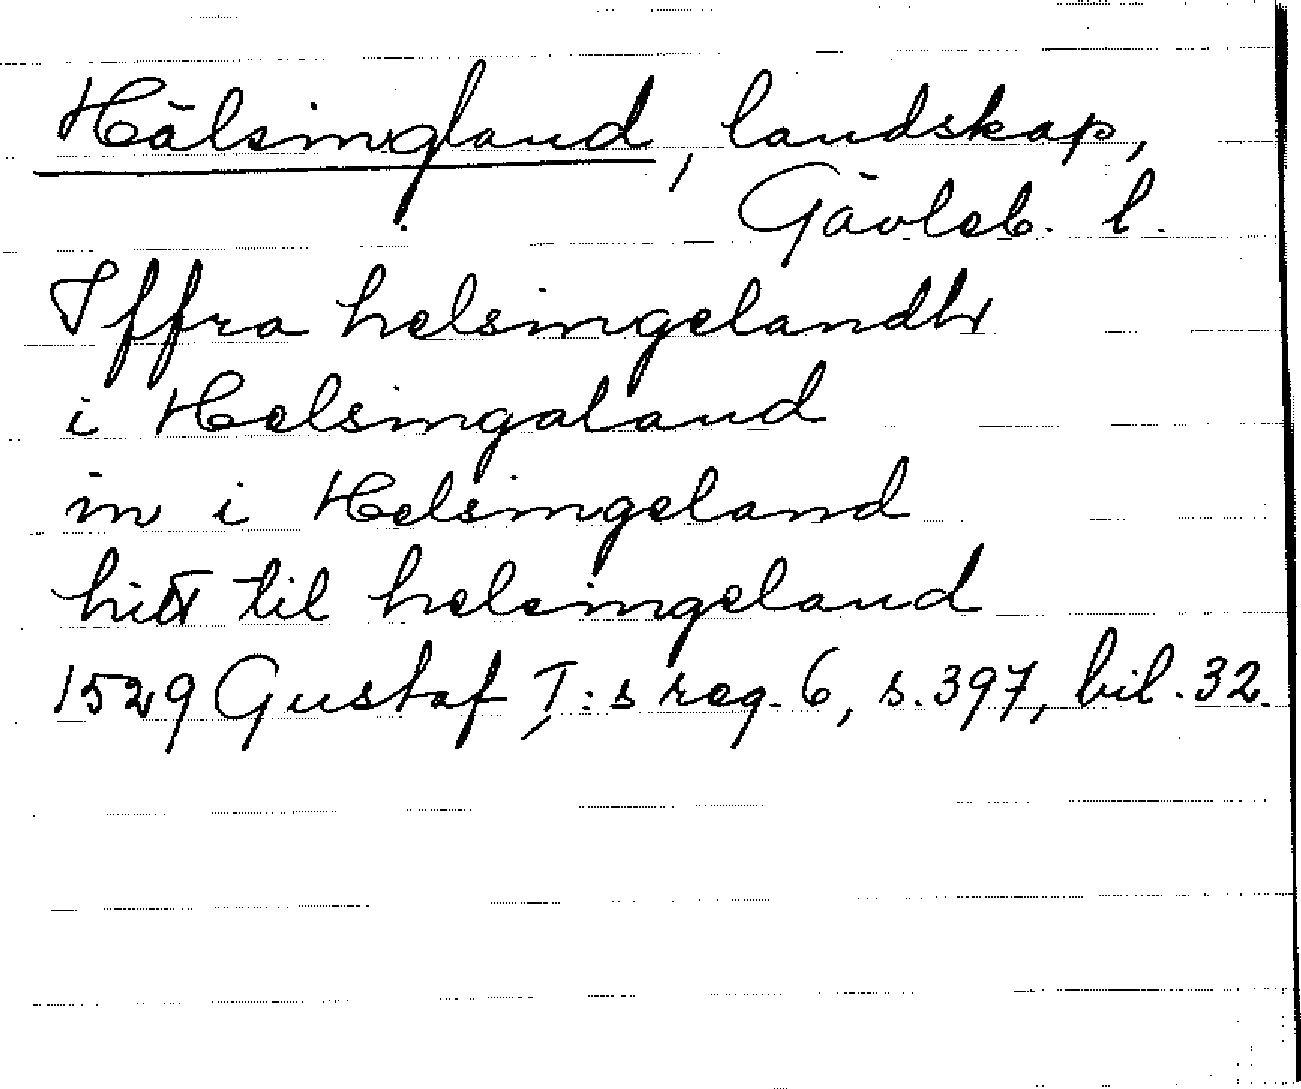 Hälsingland, landskap,
Gävleb. l.
Iffra helsingelandh
i Helsingaland
in i Helsingeland
hitt til helsingeland
1529 Gustaf I:s reg. 6, s. 397, bil. 32.